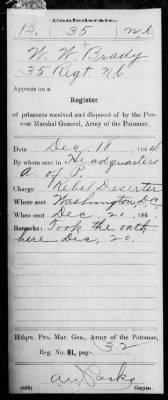 Confederate.
B. 35 N.C.
W. W. Brady
35 Regt. N.C.
Appears on a
Register
of prisoners received and disposed of by the Pro-
vost Marshal General, Army of the Potomac.
Date Dec. 18, 1864
By whom sent in Headquarters
A. of P.
Charge Rebel Deserter
Where sent Washington, D.C.
When sent Dec. 20, 186 .
Remarks: Took the oath
here Dec. 20.
Hdqrs. Pro. Mar. Gen., Army of the Potomac,
Reg. No. 81, page 32
(639) Copyist.